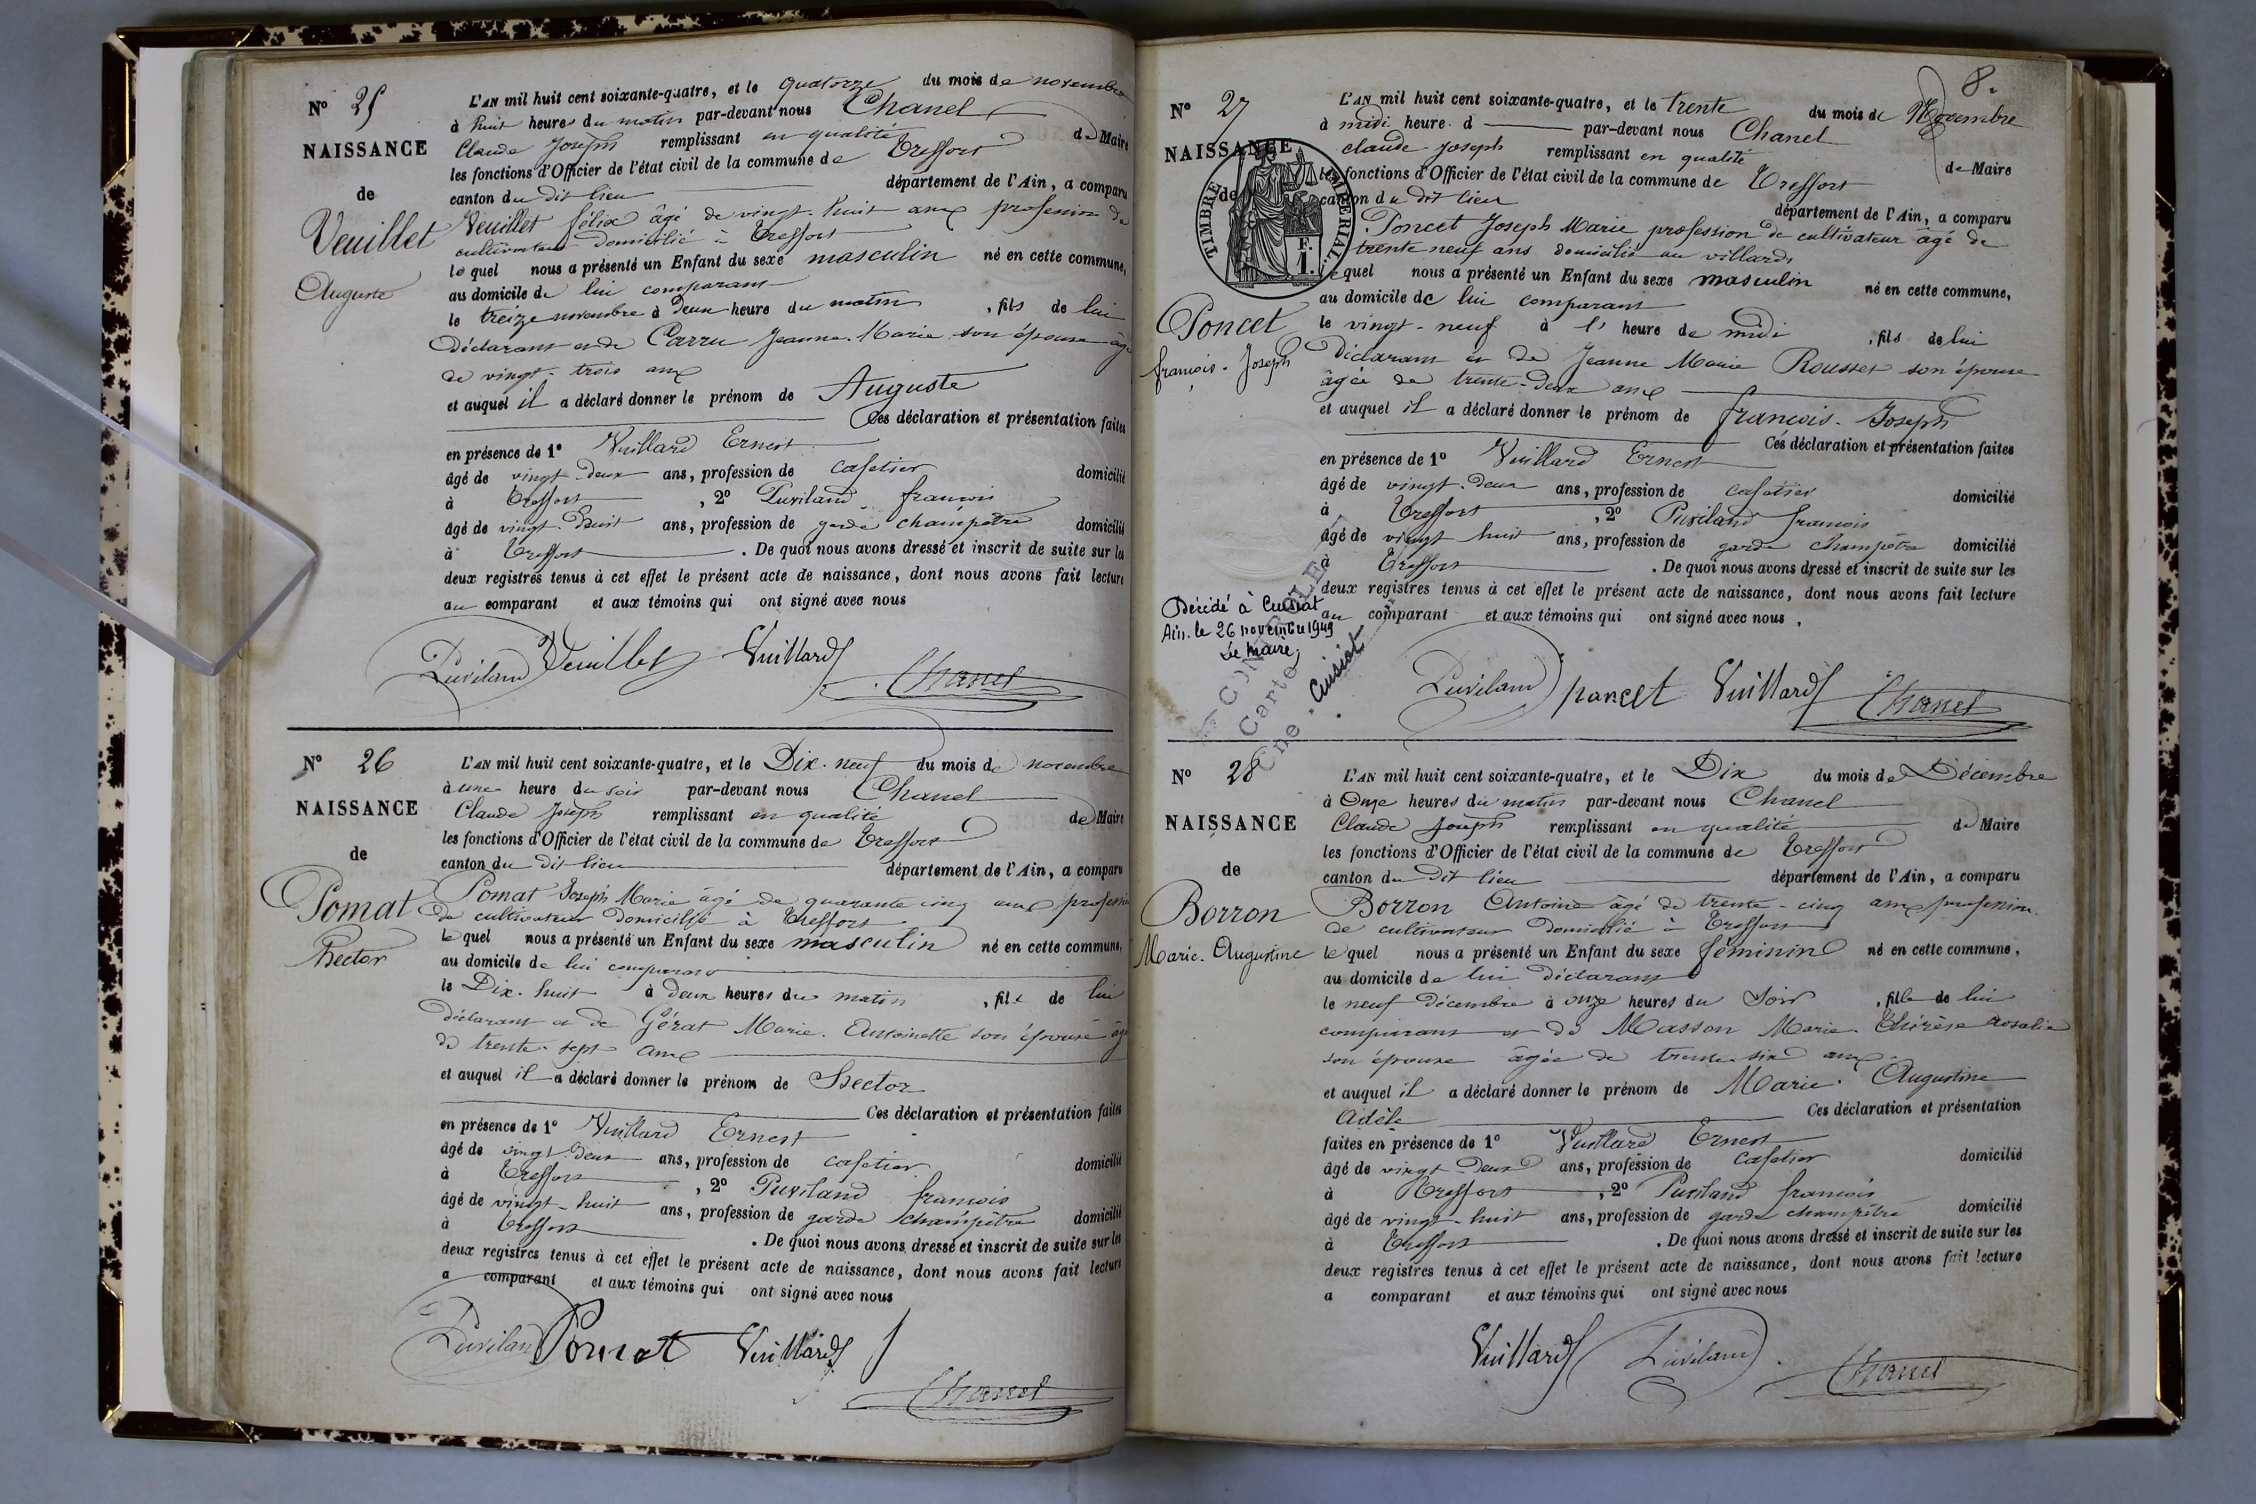 N° 25
NAISSANCE
de
Veuillet
Auguste
L'AN mil huit cent soixante-quatre, et le quatorze du mois de novembre
à huit heures du matin par-devant nous Chanel
Claude Joseph remplissant en qualité de Maire
les fonctions d'Officier de l'état civil de la commune de Treffort
canton du dit lieu département de l'Ain, a comparu
Veuillet félix âgé de vingt-huit ans profession de
cultivateur domicilié à Treffort
lequel nous a présenté un Enfant du sexe masculin né en cette commune,
au domicile de lui comparant
le treize novembre à deux heure du matin, fils de lui
déclarant et de Carru Jeanne-Marie son épouse âgé
de vingt-trois ans
et auquel il a déclaré donner le prénom de Auguste
Ces déclaration et présentation faites
en présence de 1° Vuillard Ernest
âgé de vingt-deux ans, profession de cafetier domicilié
à Treffort, 2° Puviland françois
âgé de vingt-huit ans, profession de garde champêtre domicilié
à Treffort. De quoi nous avons dressé et inscrit de suite sur les
deux registres tenus à cet effet le présent acte de naissance, dont nous avons fait lecture
au comparant et aux témoins qui ont signé avec nous
Puviland Veuillet Vuillard Chanel
N° 26
NAISSANCE
de
Pomat
Hector
L'AN mil huit cent soixante-quatre, et le Dix-neuf du mois de novembre
à une heure du soir par-devant nous Chanel
Claude Joseph remplissant en qualité de Maire
les fonctions d'Officier de l'état civil de la commune de Treffort
canton du dit lieu département de l'Ain, a comparu
Pomat Joseph Marie âgé de quarante cinq ans profession
de cultivateur domicilié à Treffort
lequel nous a présenté un Enfant du sexe masculin né en cette commune,
au domicile de lui comparant
le Dix-huit à deux heures du matin, fils de lui
déclarant et de Gérat Marie-Antoinette son épouse âgé
de trente-sept ans
et auquel il a déclaré donner le prénom de Hector
Ces déclaration et présentation faites
en présence de 1° Vuillard Ernest
âgé de vingt-deux ans, profession de cafetier domicilié
à Treffort, 2° Puviland françois
âgé de vingt-huit ans, profession de garde champêtre domicilié
à Treffort. De quoi nous avons dressé et inscrit de suite sur les
deux registres tenus à cet effet le présent acte de naissance, dont nous avons fait lecture
a comparant et aux témoins qui ont signé avec nous
Puviland Pomat Vuillard
Chanel
8.
N° 27
NAISSANCE
de
TIMBRE IMPERIAL
1 F.
Poncet
françois-Joseph
L'AN mil huit cent soixante-quatre, et le trente du mois de Novembre
à midi heure d par-devant nous Chanel
claude joseph remplissant en qualité de Maire
les fonctions d'Officier de l'état civil de la commune de Treffort
canton du dit lieu département de l'Ain, a comparu
Poncet Joseph Marie profession de cultivateur âgé de
trente neuf ans domicilié au villard
lequel nous a présenté un Enfant du sexe masculin né en cette commune,
au domicile de lui comparant
le vingt-neuf à l' heure de midi, fils de lui
déclarant et de Jeanne Marie Rousset son épouse
âgée de trente-deux ans
et auquel il a déclaré donner le prénom de françois-Joseph
Ces déclaration et présentation faites
en présence de 1° Vuillard Ernest
âgé de vingt-deux ans, profession de cafetier domicilié
à Treffort, 2° Puviland françois
âgé de vingt huit ans, profession de garde champêtre domicilié
à Treffort. De quoi nous avons dressé et inscrit de suite sur les
deux registres tenus à cet effet le présent acte de naissance, dont nous avons fait lecture
au comparant et aux témoins qui ont signé avec nous.
Décédé à Cuisiat
Ain. le 26 novembre 1949
Le maire,
CONTROLE
Carte
Cne. Cuisiat
Puviland poncet Vuillard Chanel
N° 28
NAISSANCE
de
Borron
Marie-Augustine
L'AN mil huit cent soixante-quatre, et le Dix du mois de Décembre
à Onze heures du matin par-devant nous Chanel
Claude Joseph remplissant en qualité de Maire
les fonctions d'Officier de l'état civil de la commune de Treffort
canton du Dit lieu département de l'Ain, a comparu
Borron Antoine âgé de trente-cinq ans profession
de cultivateur Domicilié à Treffort
lequel nous a présenté un Enfant du sexe féminin né en cette commune,
au domicile de lui déclarant
le neuf Décembre à onze heures du Soir, fille de lui
comparant et de Masson Marie-Thérèse Rosalie
son épouse âgée de trente-six ans
et auquel il a déclaré donner le prénom de Marie-Augustine
Adèle Ces déclaration et présentation
faites en présence de 1° Vuillard Ernest
âgé de vingt-deux ans, profession de cafetier domicilié
à Treffort, 2° Puviland françois
âgé de vingt-huit ans, profession de garde champêtre domicilié
à Treffort. De quoi nous avons dressé et inscrit de suite sur les
deux registres tenus à cet effet le présent acte de naissance, dont nous avons fait lecture
a comparant et aux témoins qui ont signé avec nous
Vuillard Puviland Chanel